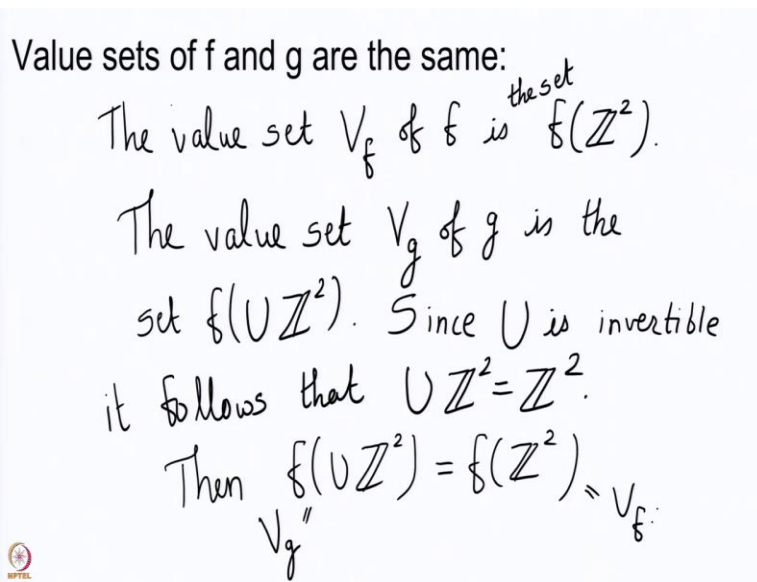 Value sets of f and g are the same:
The value set V_f of f is the set f(ℤ²).
The value set V_g of g is the
set f(Uℤ²). Since U is invertible
it follows that Uℤ² = ℤ².
Then f(Uℤ²) = f(ℤ²) = V_f.
V_g "
NPTEL